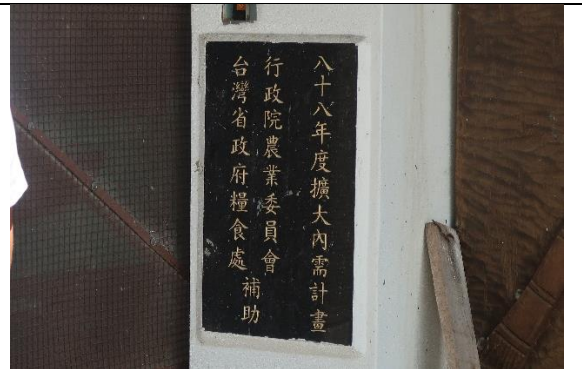 八十八年度擴大內需計畫
行政院農業委員會
台灣省政府糧食處
補助